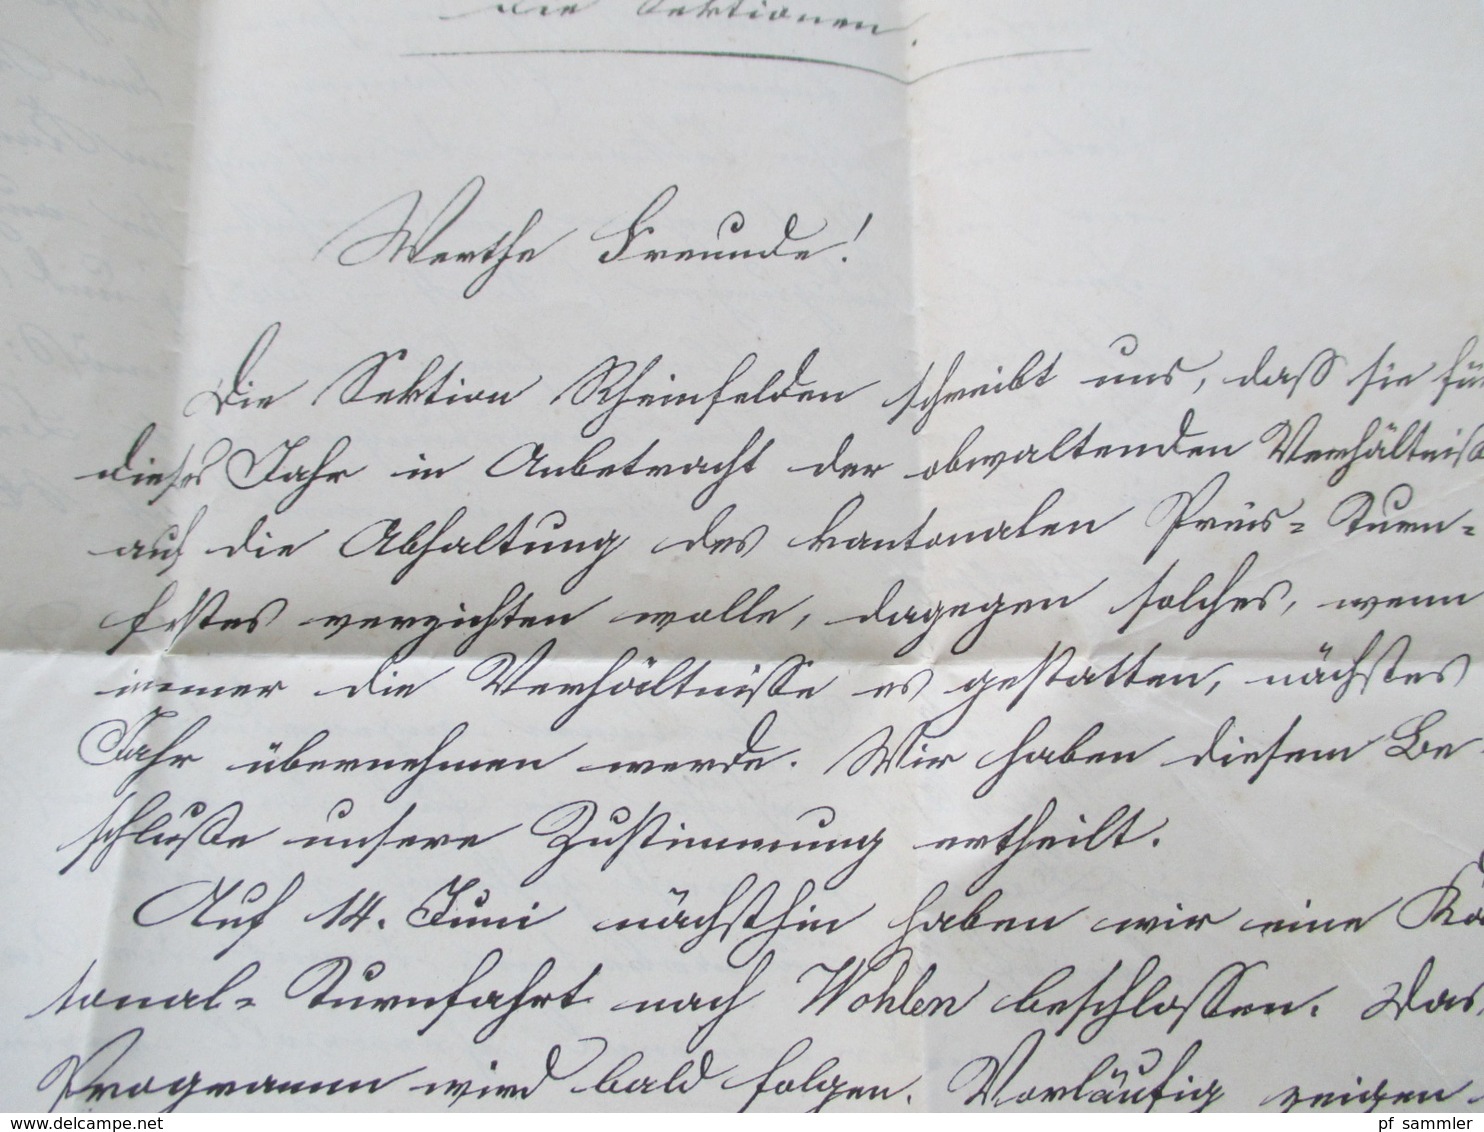 die Sektionen.
Werthe Freunde!
Die Sektion Rheinfelden schreibt uns, dass sie für
dieses Jahr in Anbetracht der obwaltenden Verhältniss
auf die Abhaltung des kantonalen Preis-Turn-
festes verzichten wolle, dagegen solches, wenn
immer die Verhältnisse es gestatten, nächstes
Jahr übernehmen werde. Wir haben diesem Be-
schlusse unsere Zustimmung ertheilt.
Auf 14. Juni nächsthin haben wir eine Ka
tonal-Turnfahrt nach Wohlen beschlossen. Das
Programm wird bald folgen. Vorläufig zeigen
www.delcampe.net
pf_sammler